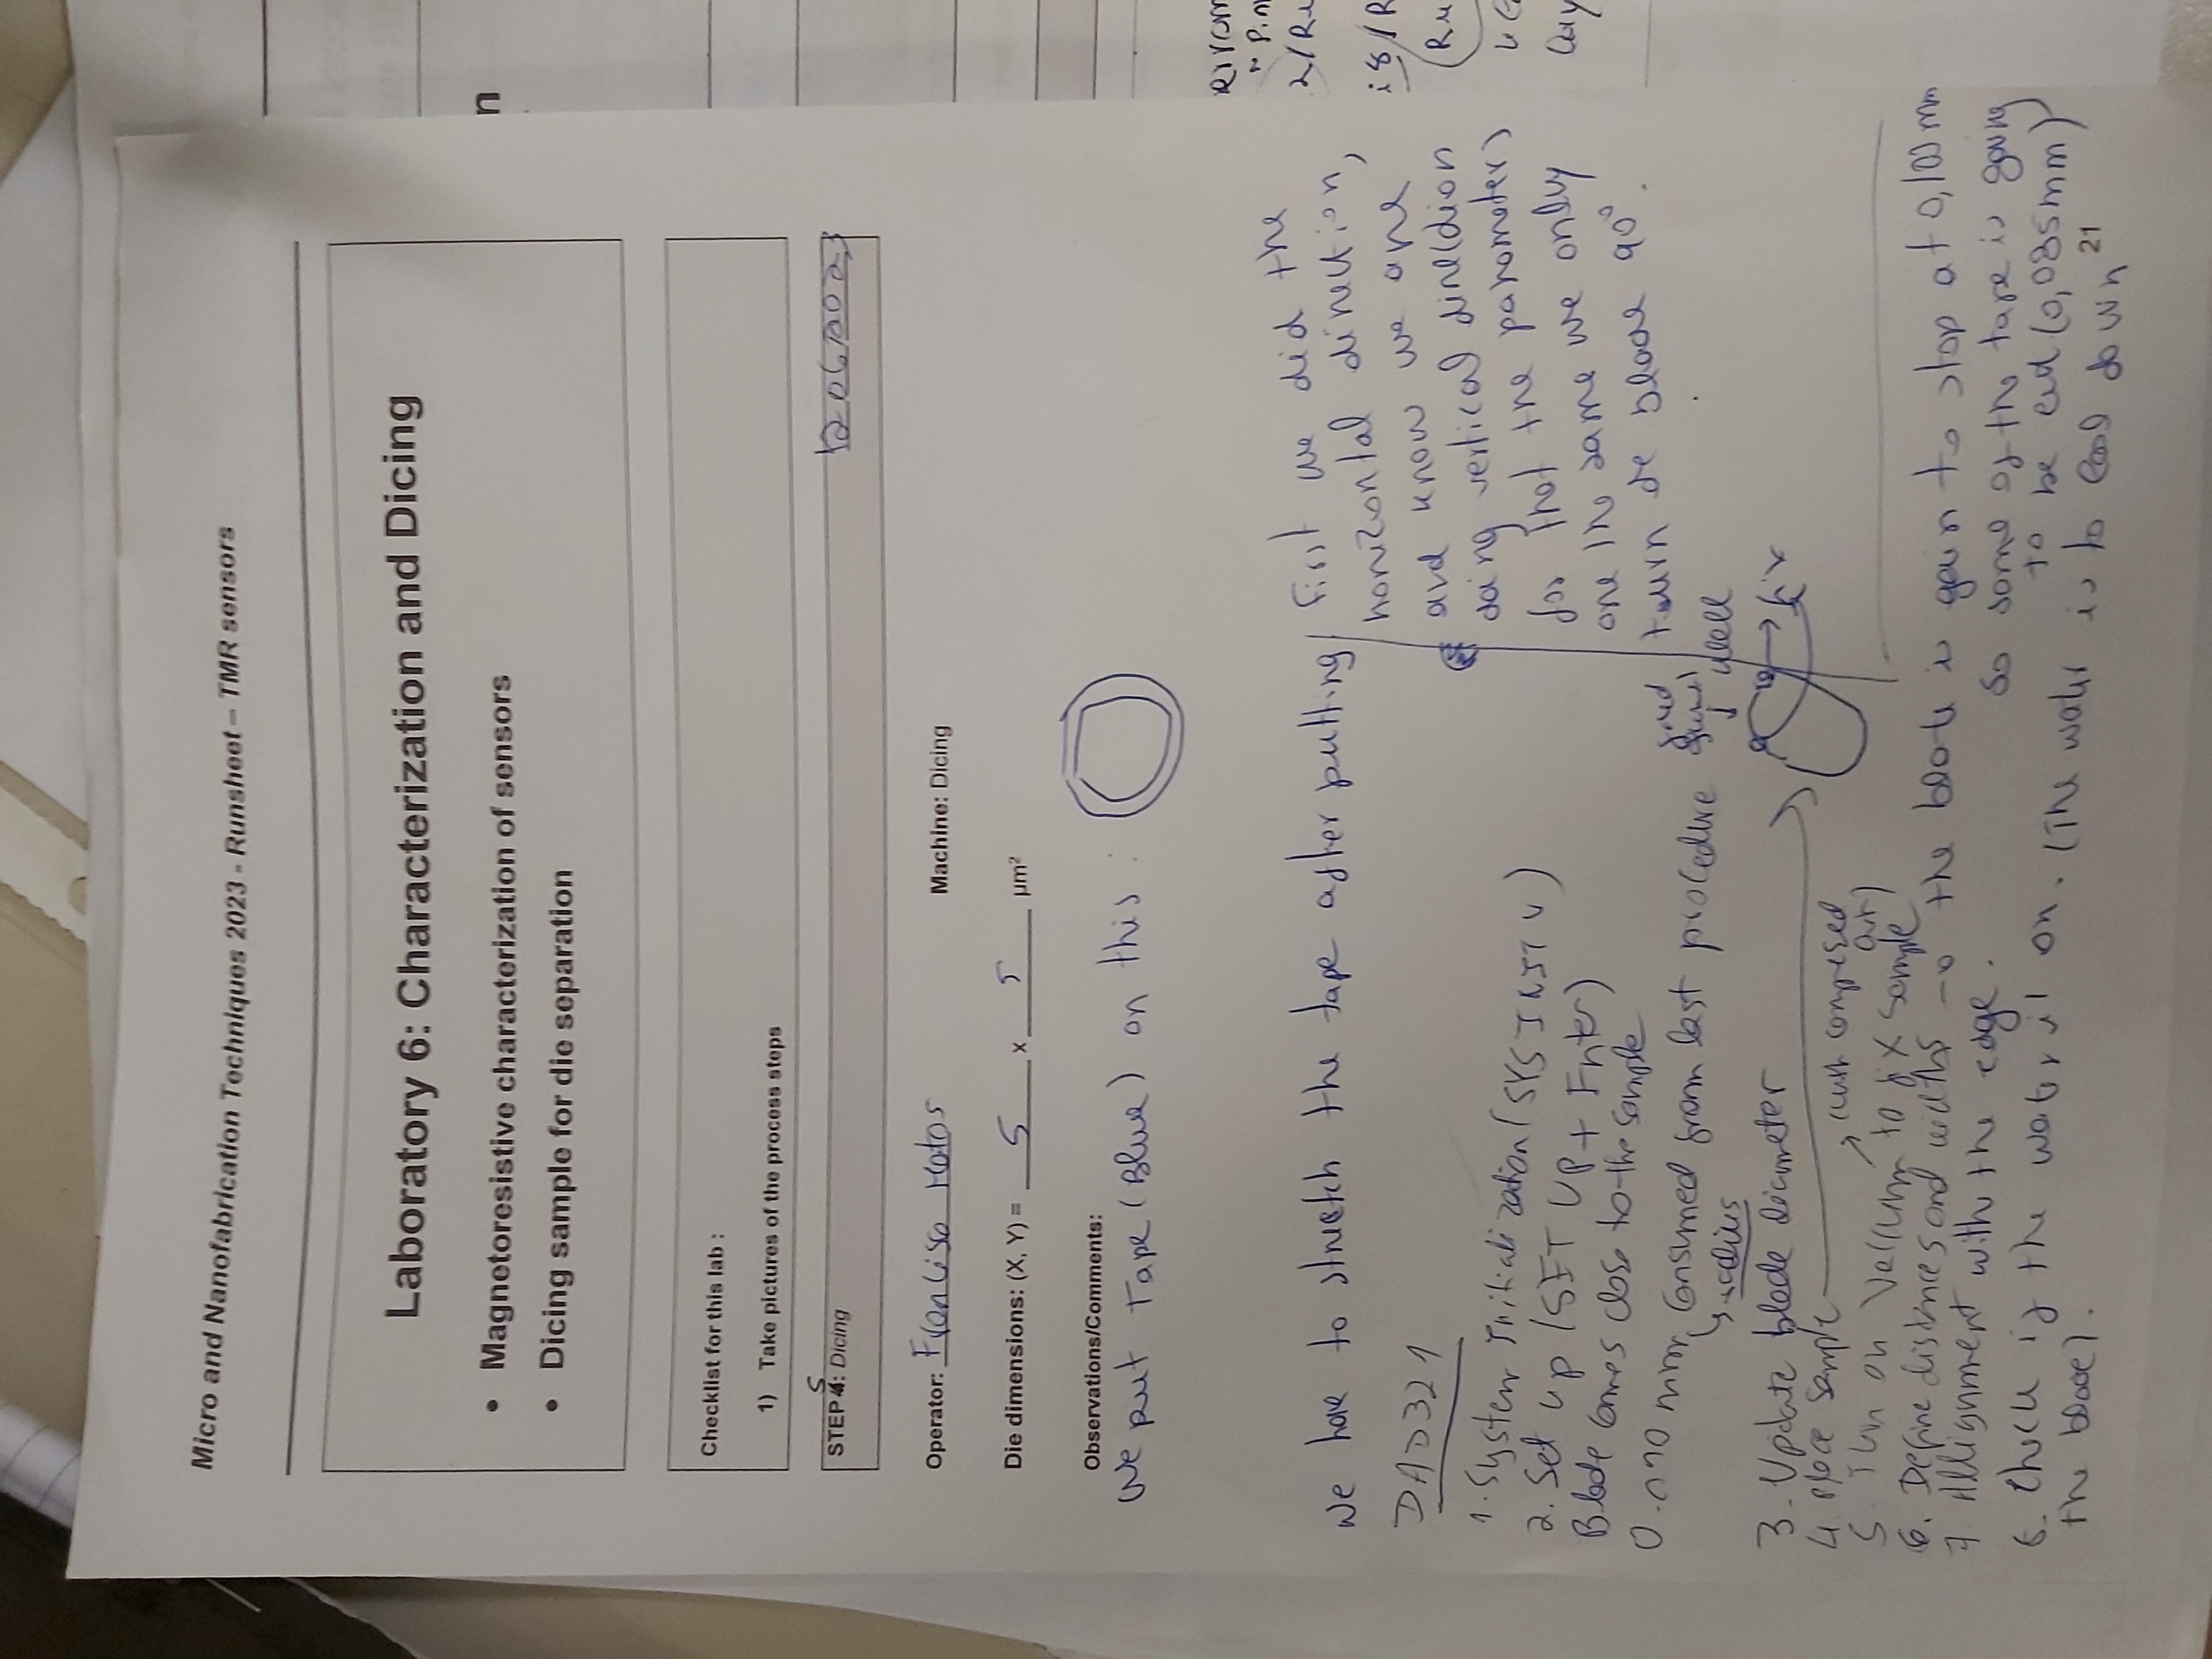 Micro and Nanofabrication Techniques 2023 - Runsheet – TMR sensors
Laboratory 6: Characterization and Dicing
• Magnetoresistive characterization of sensors
• Dicing sample for die separation
Checklist for this lab :
1) Take pictures of the process steps
5
STEP 4: Dicing
12062023
Operator: Francisco Matos
Machine: Dicing
Die dimensions: (X, Y) = 5 x 5 µm²
Observations/Comments:
We put Tape (Blue) on this :
We have to stretch the tape after putting
DAD321
1. System Initialization (SYS INIT
2. Set up (SET UP + Enter)
Blade comes close to the sample
mm consumed from last procedure
↳ radius
3. Update blade diameter
4. Place sample
5. Turn on Vaccum to fix sample
(with compressed
air)
6. Define distances and widths → the blade is goin to stop at 0,100 mm
so some of the tape is going
to be cut (0,085mm)
7. Allignment with the edge.
8. Check if the water is on. (The water is to cool down
the blade).
First we did the
horizontal direction,
and know we are
doing vertical direction
for that the parameters
are the same we only
turn de blade 90°.
→ fix
21
n
2/R